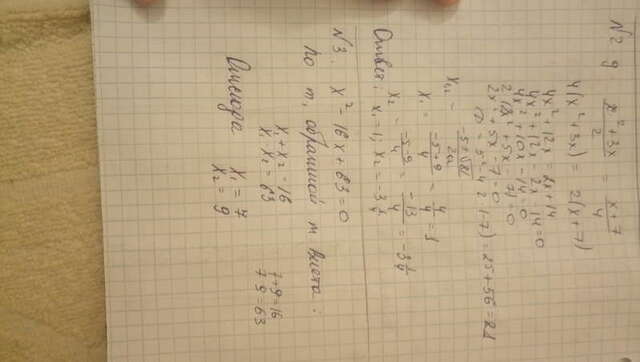 №2 g
x²+3x / 2 = x+7 / 4
4(x²+3x) = 2(x+7)
4x²+12x = 2x+14
4x²+12x-2x-14=0
4x²+10x-14=0
2(2x²+5x-7)=0
2x²+5x-7=0
D = 5²-4·2·(-7) = 25+56=81
x₁,₂ = -5±√81 / 2a
x₁ = -5+9 / 4 = 4/4 = 1
x₂ = -5-9 / 4 = -13/4 = -3 1/4
Ответ: x₁=1; x₂=-3 1/4
№3. x²-16x+63=0
по т, обратной т Виета:
x₁+x₂=16 7+9=16
x₁·x₂=63 7·9=63
Отсюда x₁=7
x₂=9